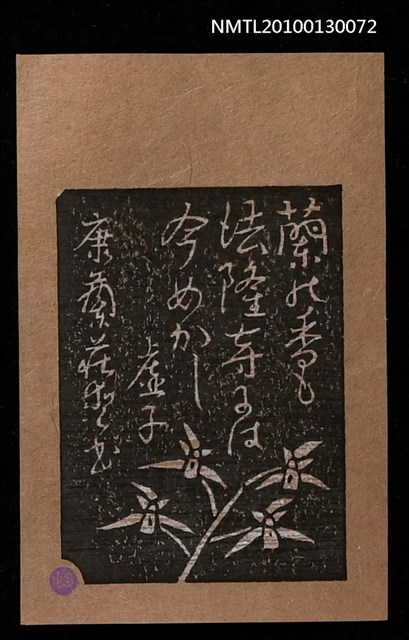 NMTL20100130072
蘭の香も
法隆寺には
今めかし
虚子
康蘭荘藏書